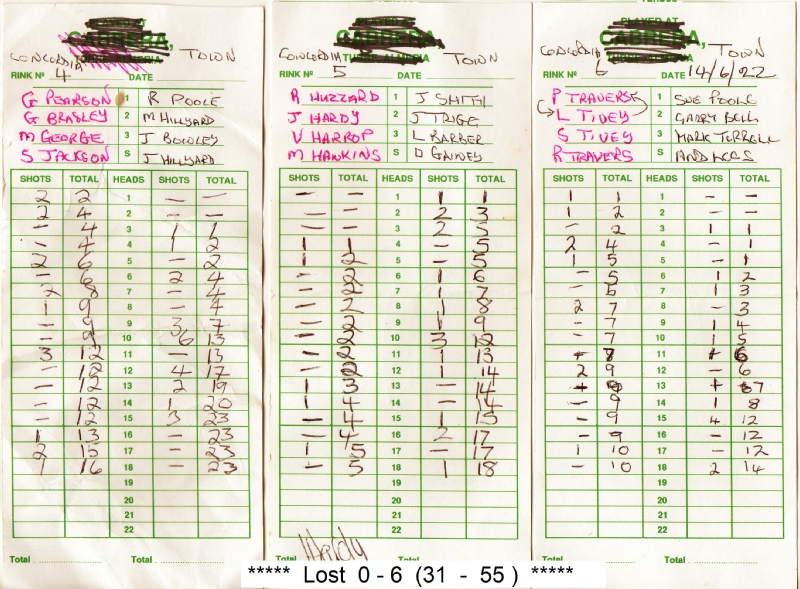 PLAYED AT
CABRERA,
CONCORDIA TOWN
RINK Nº 4 DATE
G PEARSON 1 R POOLE
G BRADLEY 2 M HILLYARD
M GEORGE 3 J BOWLEY
S JACKSON S J HILLYARD
SHOTS TOTAL HEADS SHOTS TOTAL
2 2 1 – –
2 4 2 – –
– 4 3 1 1
– 4 4 1 2
2 6 5 – 2
– 6 6 2 4
2 8 7 – 4
1 9 8 – 4
– 9 9 3 7
– 9 10 6 13
3 12 11 – 13
– 12 12 4 17
– 12 13 2 19
– 12 14 1 20
– 12 15 3 23
1 13 16 – 23
2 15 17 – 23
1 16 18 – 23
19
20
21
22
Total Total
CABRERA,
CONCORDIA TURRE, ALMERIA TOWN
RINK Nº 5 DATE
R HUZZARD 1 J SMITH
J HARDY 2 J TRIGG
V HARROP 3 L BARBER
M HAWKINS S D GAINEY
SHOTS TOTAL HEADS SHOTS TOTAL
– – 1 1 1
– – 2 2 3
– – 3 2 5
1 1 4 – 5
1 2 5 – 5
– 2 6 1 6
– 2 7 1 7
– 2 8 1 8
– 2 9 1 9
– 2 10 3 12
– 2 11 1 13
– 2 12 1 14
1 3 13 – 14
1 4 14 – 14
– 4 15 1 15
– 4 16 2 17
1 5 17 – 17
– 5 18 1 18
19
20
21
22
Total Total
PLAYED AT
CABRERA,
CONCORDIA TOWN
RINK Nº 6 DATE 14/6/22
P TRAVERS 1 SUE POOLE
L TIVEY 2 GARRY BELL
S TIVEY 3 MARK TURRELL
R TRAVERS S AND LEES
SHOTS TOTAL HEADS SHOTS TOTAL
1 1 1 – –
1 2 2 – –
– 2 3 1 1
2 4 4 – 1
1 5 5 – 1
– 5 6 1 2
– 5 7 1 3
2 7 8 – 3
– 7 9 1 4
– 7 10 1 5
– 11 1 6
2 9 12 – 6
– 13 1 7
– 9 14 1 8
– 9 15 4 12
– 9 16 – 12
1 10 17 – 12
– 10 18 2 14
19
20
21
22
Total Total
***** Lost 0 - 6 (31 - 55 ) *****